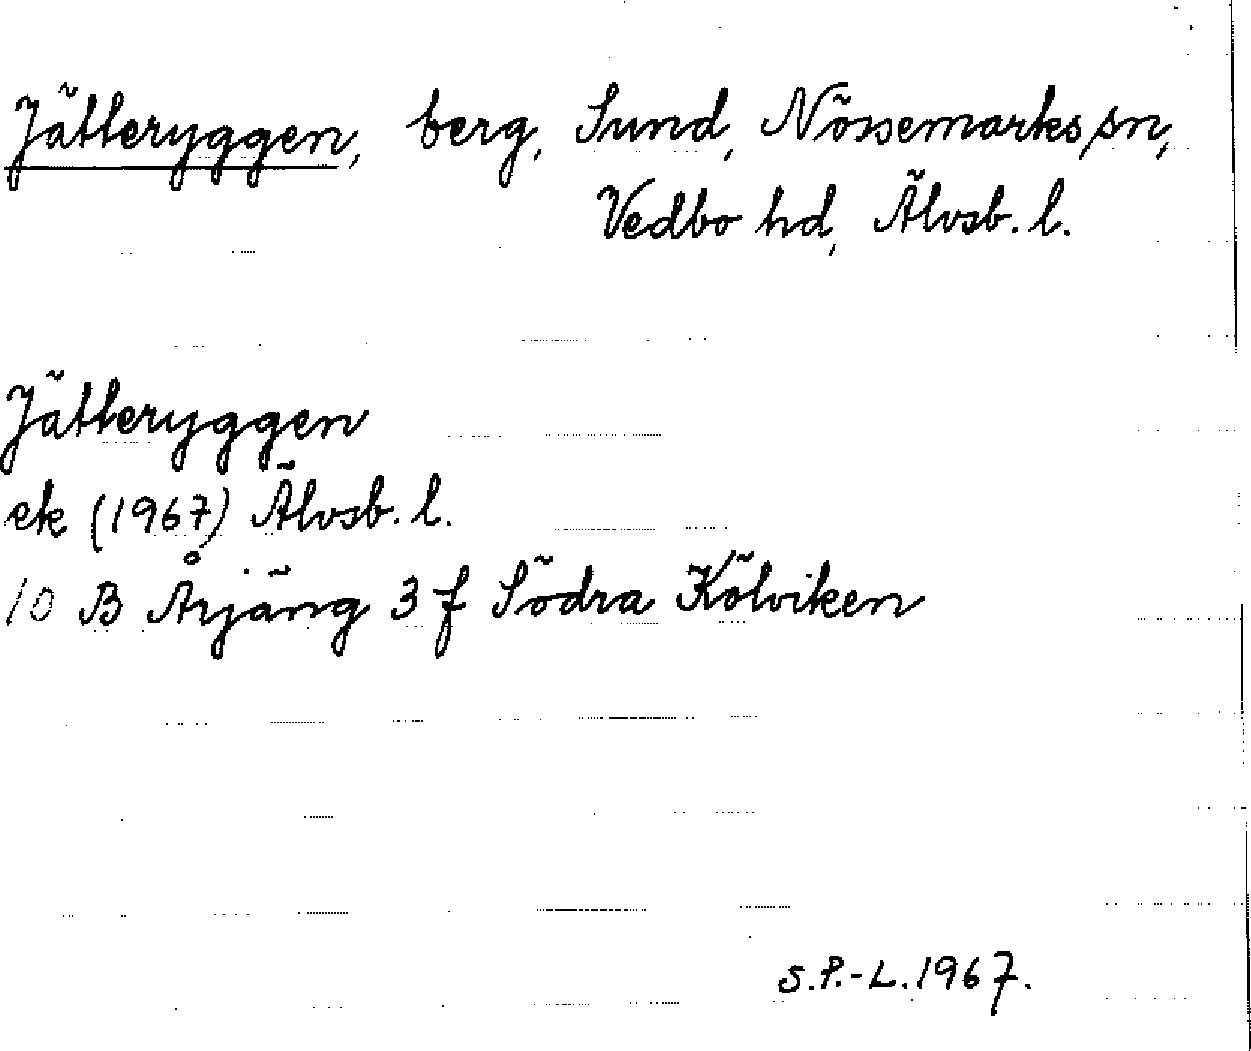 Jätteryggen, berg, Sund, Nössemarks sn,
Vedbo hd, Älvsb. l.
Jätteryggen
ek (1967) Älvsb. l.
10 B Årjäng 3 f Södra Kölviken
S.P.-L. 1967.